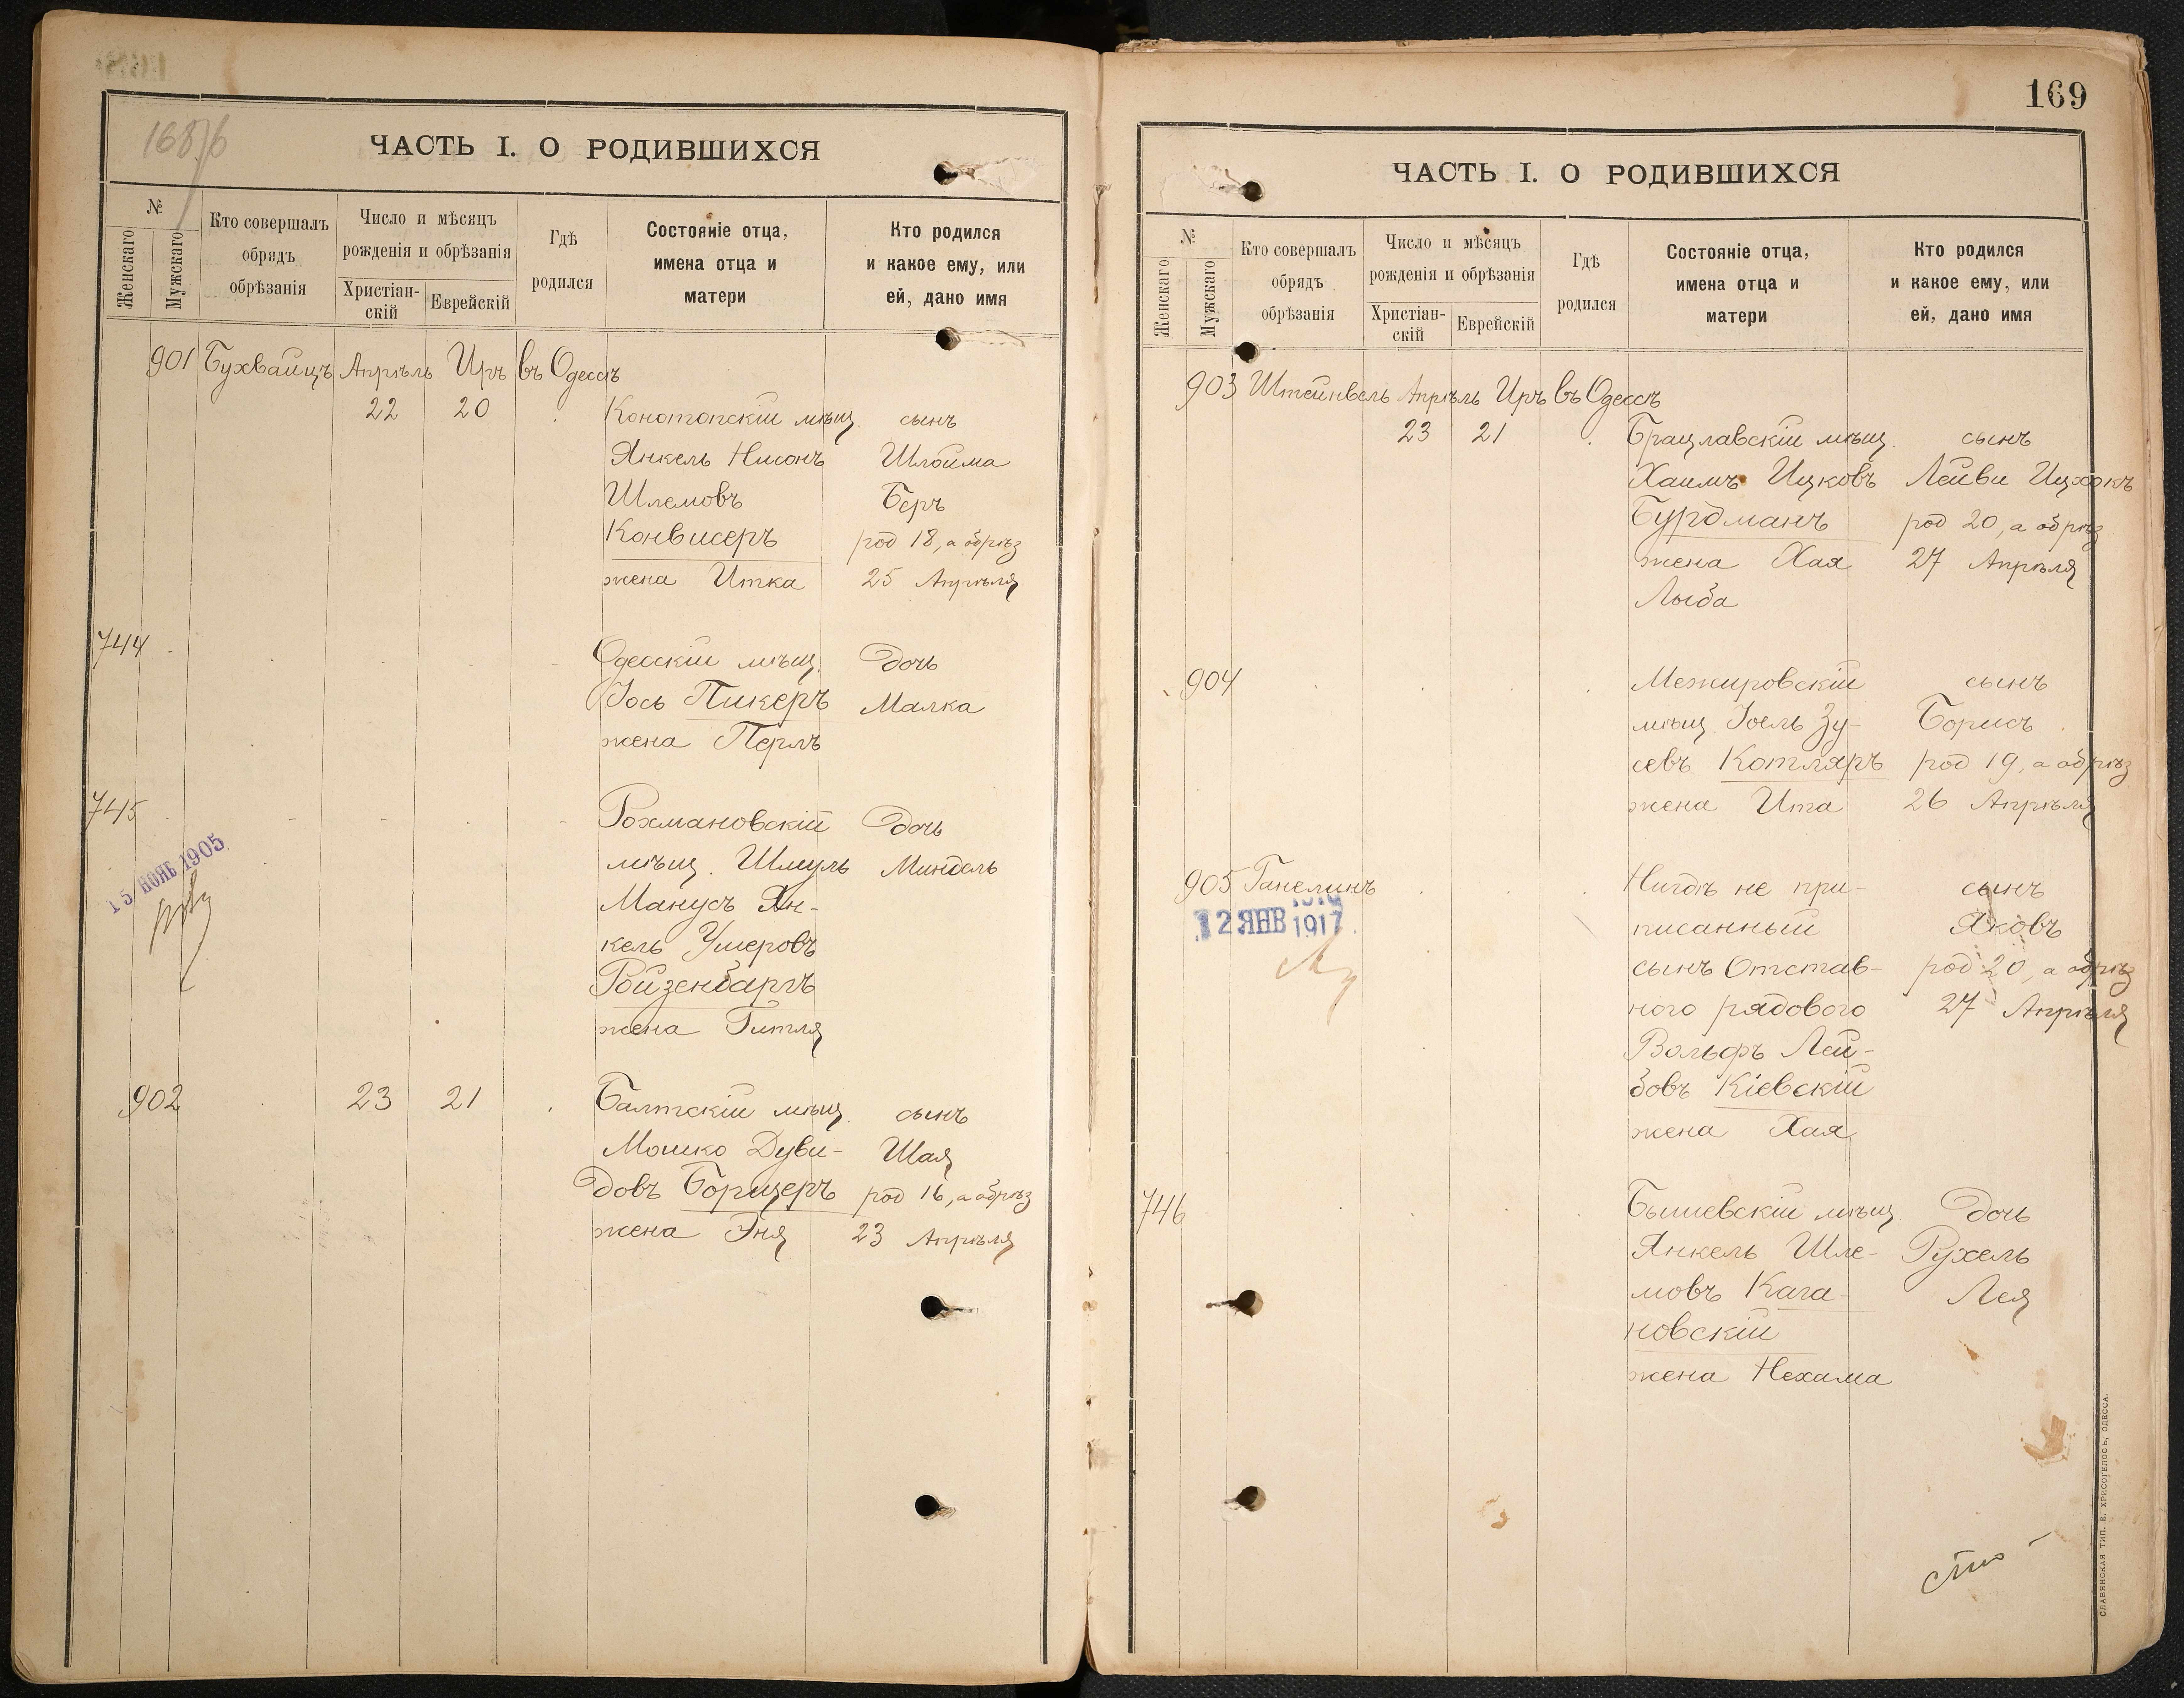 168/б
ЧАСТЬ I. О РОДИВШИХСЯ
№
Женскаго
Мужскаго
Кто совершалъ
обрядъ
обрѣзанія
Число и мѣсяцъ
рожденія и обрѣзанія
Христіан-
скій
Еврейскій
Гдѣ
родился
Состояніе отца,
имена отца и
матери
Кто родился
и какое ему, или
ей, дано имя
901 Бухвайцъ Апрѣль Иръ въ Одессѣ
22 20 Конотопскій мѣщ. сынъ
Янкель Нисонъ Шлойма
Шлемовъ Беръ
Конвисеръ род 18, а обрѣз
жена Итка 25 Апрѣля
744
Одесскій мѣщ. Дочь
Іось Пикеръ Малка
жена Перль
745
Рохмановскій Дочь
мѣщ. Шмуль Миндель
15 НОЯБ 1905
Манусъ Ян-
кель Умеровъ
Ройзенбаргъ
жена Гитля
902 23 21 Балтскій мѣщ. сынъ
Мошко Дуви- Шая
довъ Борщеръ род 16, а обрѣз
жена Эня 23 Апрѣля
169
ЧАСТЬ I. О РОДИВШИХСЯ
№
Женскаго
Мужскаго
Кто совершалъ
обрядъ
обрѣзанія
Число и мѣсяцъ
рожденія и обрѣзанія
Христіан-
скій
Еврейскій
Гдѣ
родился
Состояніе отца,
имена отца и
матери
Кто родился
и какое ему, или
ей, дано имя
903 Штейнвель Апрѣль Иръ въ Одессѣ
23 21 Брацлавскій мѣщ. сынъ
Хаимъ Ицковъ Лейви Ицхокъ
Бурдманъ род 20, а обрѣз
жена Хая 27 Апрѣля
Лыба
904 Межировскій сынъ
мѣщ. Іоель Зу- Борисъ
севъ Котляръ род 19, а обрѣз
жена Ита 26 Апрѣля
905 Ганелинъ Нигдѣ не при- сынъ
12 ЯНВ 1917
писанный Яковъ
сынъ Отстав- род 20, а обрѣз
ного рядового 27 Апрѣля
Вольфъ Лей-
бовъ Кіевскій
жена Хая
746 Бышевскій мѣщ. Дочь
Янкель Шле- Рухель
мовъ Кага- Лея
новскій
жена Нехама
СЛАВЯНСКАЯ ТИП. Е. ХРИСОГЕЛОСЪ, ОДЕССА.